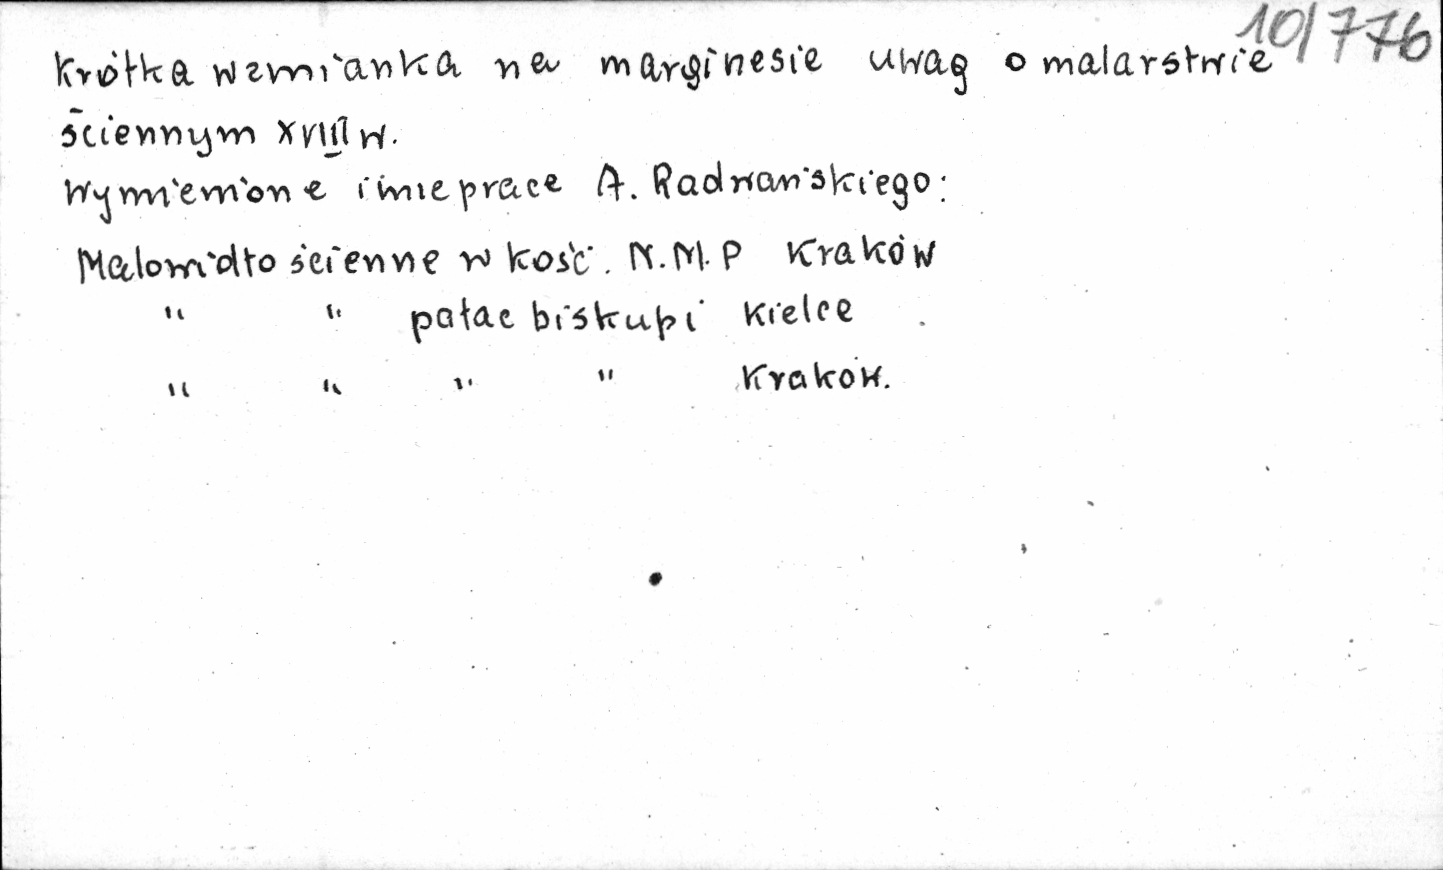 10/776
Krótka wzmianka na marginesie uwag o malarstwie
ściennym XVIII w.
Wymienione inne prace A. Radwańskiego:
Malowidło ścienne w kośc. N.M.P Kraków
" " pałac biskupi Kielce
" " " " Kraków.